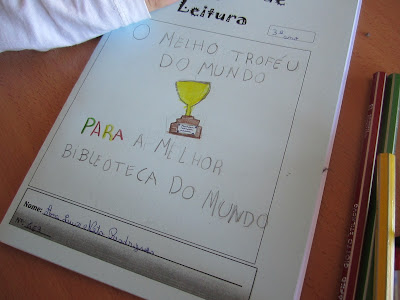 Leitura
3º ano
O MELHO TROFÉU
DO MUNDO
PARA A MELHOR
BIBLIOTECA DO MUNDO
Nome: Ana
Nº